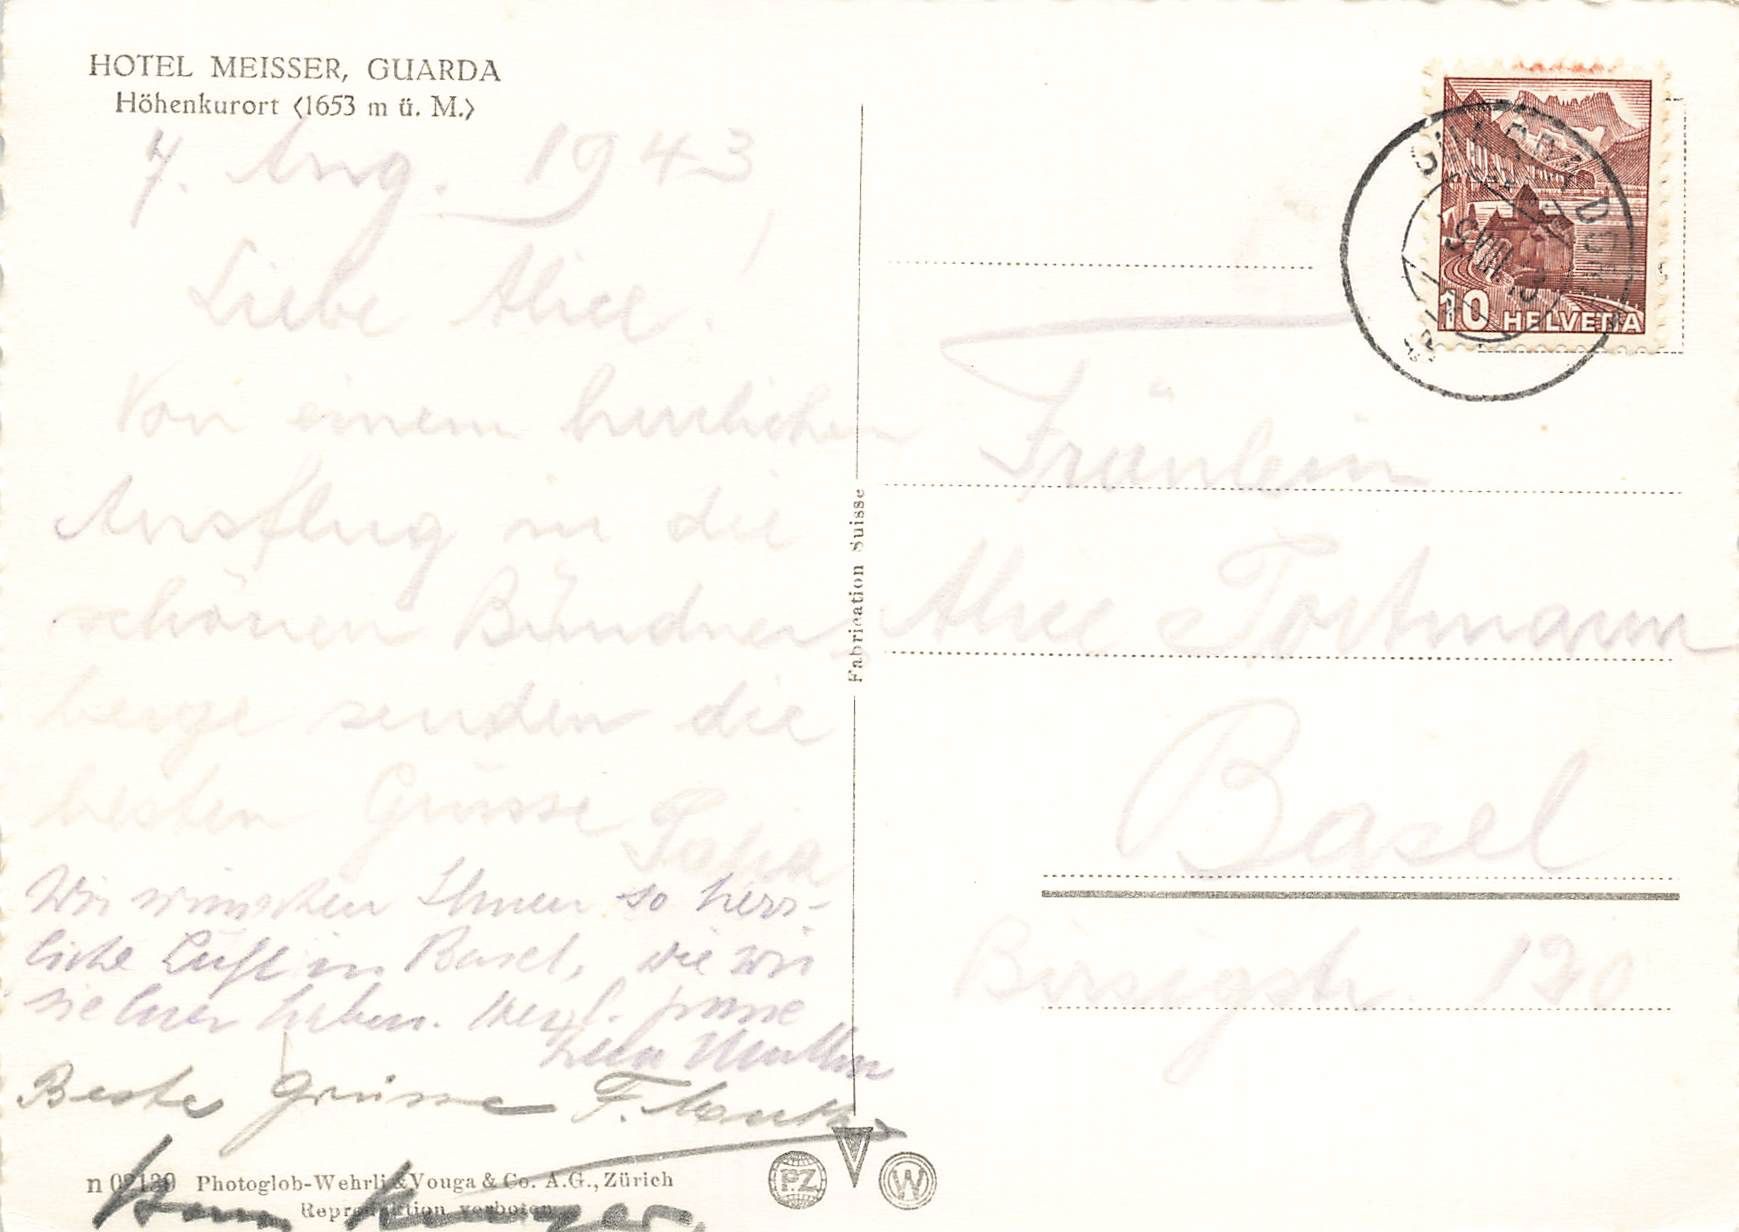 HOTEL MEISSER, GUARDA
Höhenkurort (1653 m ü. M.)
7. Aug. 1943
Liebe Alice.
Von einem herrlichen
Ausflug in die
schönen Bündner
berge senden die
besten Grüsse
Papa
Wir wünschen Ihnen so herr-
liche Luft in Basel, wie wir
sie hier haben. Herzl. 
Beste Grüsse F.
n 02130 Photoglob-Wehrli & Vouga & Co. A.G., Zürich
Reproduktion verboten
Fabrication Suisse
PZ
W
10 HELVETIA
GUARDA
Fräulein
Alice Tortmann
Basel
Birsigstr. 120